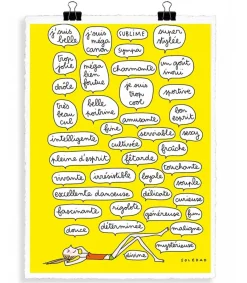 j'suis belle
j'suis méga canon
SUBLIME
sympa
super stylée
trop jolie
méga bien foutue
charmante
un goût inouï
drôle
je suis trop cool
sportive
très beau cul
belle poitrine
amusante
bon esprit
fine
intelligente
serviable
sexy
cultivée
fraîche
pleine d'esprit
fêtarde
touchante
vivante
irrésistible
loyale
souple
excellente danseuse
délicate
curieuse
fascinante
rigolote
généreuse
fun
douce
déterminée
maligne
mystérieuse
divine
SOLEDAD